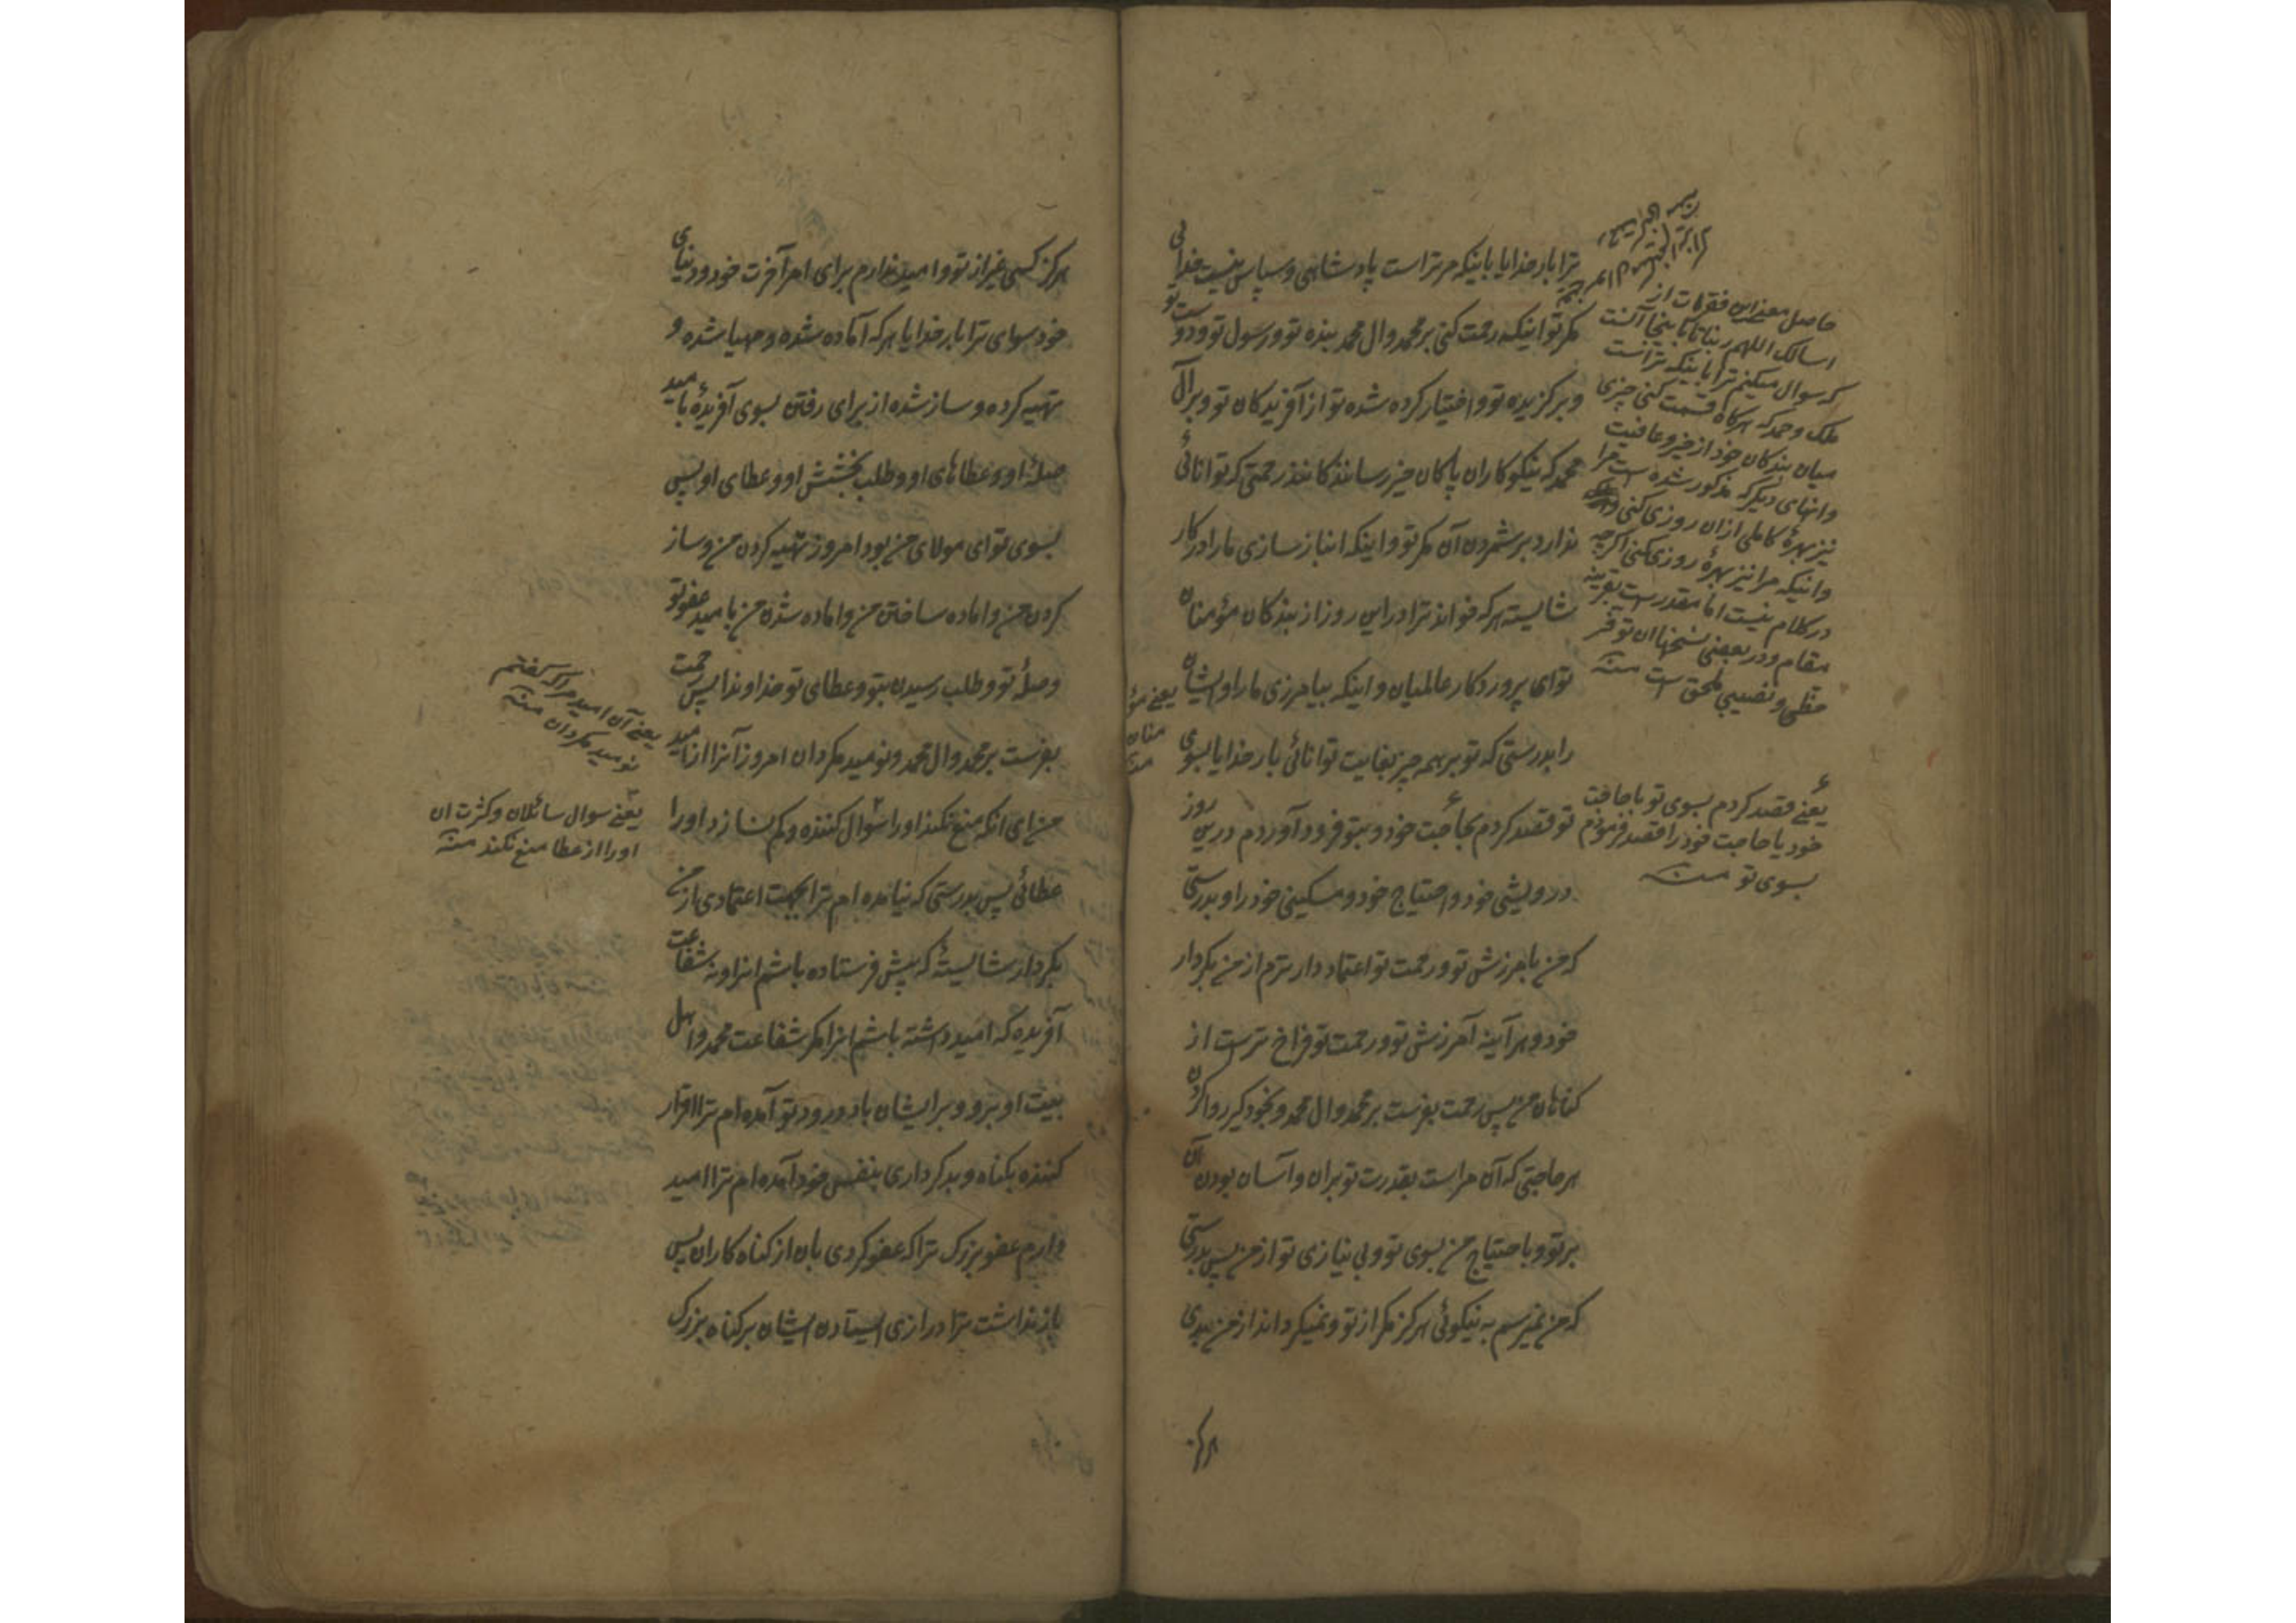 ترا بار خدایا باینکه مر تراست پادشاهی و سپاس نیست خدائی
مکر تو اینکه رحمت کنی بر محمد وال محمد بنده تو و رسول تو و دوست تو
و برکزیده تو و اختیار کرده شده تو از آفریدکان تو و بر آل
محمد که نیکوکاران پاکان خیر رسانندکانند رحمتی که توانائی
ندارد بر شمردن آن مکر تو و اینکه انباز سازی ما را در کار
شایسته هر که خواند ترا در این روز از بندکان مؤمنان
تو ای پروردکار عالمیان و اینکه بیامرزی ما را و ایشان
را بدرستی که تو بر همه چیز بغایت توانائی بار خدایا بسوی
تو قصد کردم بحاجت خود و بتو فرود آوردم درین روز
درویشی خود و احتیاج خود و مسکینی خود را و بدرستی
که من بامرزش تو و رحمت تو اعتماد دارترم از من بکردار
خود و هر آینه آمرزش تو و رحمت تو فراخ ترست از
کناهان من پس رحمت بفرست بر محمد وال محمد و بخود کیر روا کردن
هر حاجتی که آن مراست بقدرت تو بران و آسان بودن آن
بر تو و باحتیاج من بسوی تو و بی نیازی تو از من پس بدرستی
که من نمیرسم به نیکوئی هرکز مکر از تو و نمیکرداند از من بدی
هرکز
حاصل معنی این فقرات از
اسالک اللهم ربنا تا اینجا آنست
که سوال میکنم ترا باینکه تراست
ملک و حمد که هرکاه قسمت کنی چیزی
میان بندکان خود از خیر و عافیت
وانهای دیکر که مذکور شده است مرا
نیز بهرهٔ کاملی ازان روزی کنی
و اینکه مرا نیز بهرهٔ روزی کنی اکرچه
در کلام نیست اما مقدر است بقرینه
مقام و در بعضی نسخها ان توفر
حظی و نصیبی ملحق است منه
یعنی مؤ
منان
منه
یعنی قصد کردم بسوی تو باحاجت
خود یا حاجت خود را قصد فرمودم
بسوی تو منه
هرکز کسی غیر از تو و امید ندارم برای امر آخرت خود و دنیای
خود سوای ترا بار خدایا هر که آماده شده و مهیا شده و
تهیه کرده و ساز شده از برای رفتن بسوی آفریدهٔ بامید
صلهٔ او و عطاهای او و طلب بخشش او و عطای او پس
بسوی تو ای مولای من بود امروز تهیه کردن من و ساز
کردن من و اماده ساختن من و اماده شدن من بامید عفو تو
و صلهٔ تو و طلب رسیدن بتو و عطای تو خداوندا پس رحمت
بفرست بر محمد وال محمد و نومید مکردان امروز آنرا از امید
من ای انکه منع نکند او را سوال کننده و کم نسازد او را
عطائی پس بدرستی که نیامده ام ترا بجهت اعتمادی از من
بکردار شایستهٔ که پیش فرستاده باشم انرا و نه شفاعت
آفریدهٔ که امید داشته باشم انرا مکر شفاعت محمد و اهل
بیت او برو و بر ایشان باد درود تو آمده ام ترا اقرار
کننده بکناه و بدکرداری بنفس خود آمده ام ترا امید
دارم عفو بزرک ترا که عفو کردی بان از کناه کاران پس
باز نداشت ترا درازی ایستادن ایشان بر کناه بزرک
یعنی آن امید مرا که کفتم
نومید مکردان منه
یعنی سوال سائلان و کثرت ان
او را از عطا منع نکند منه